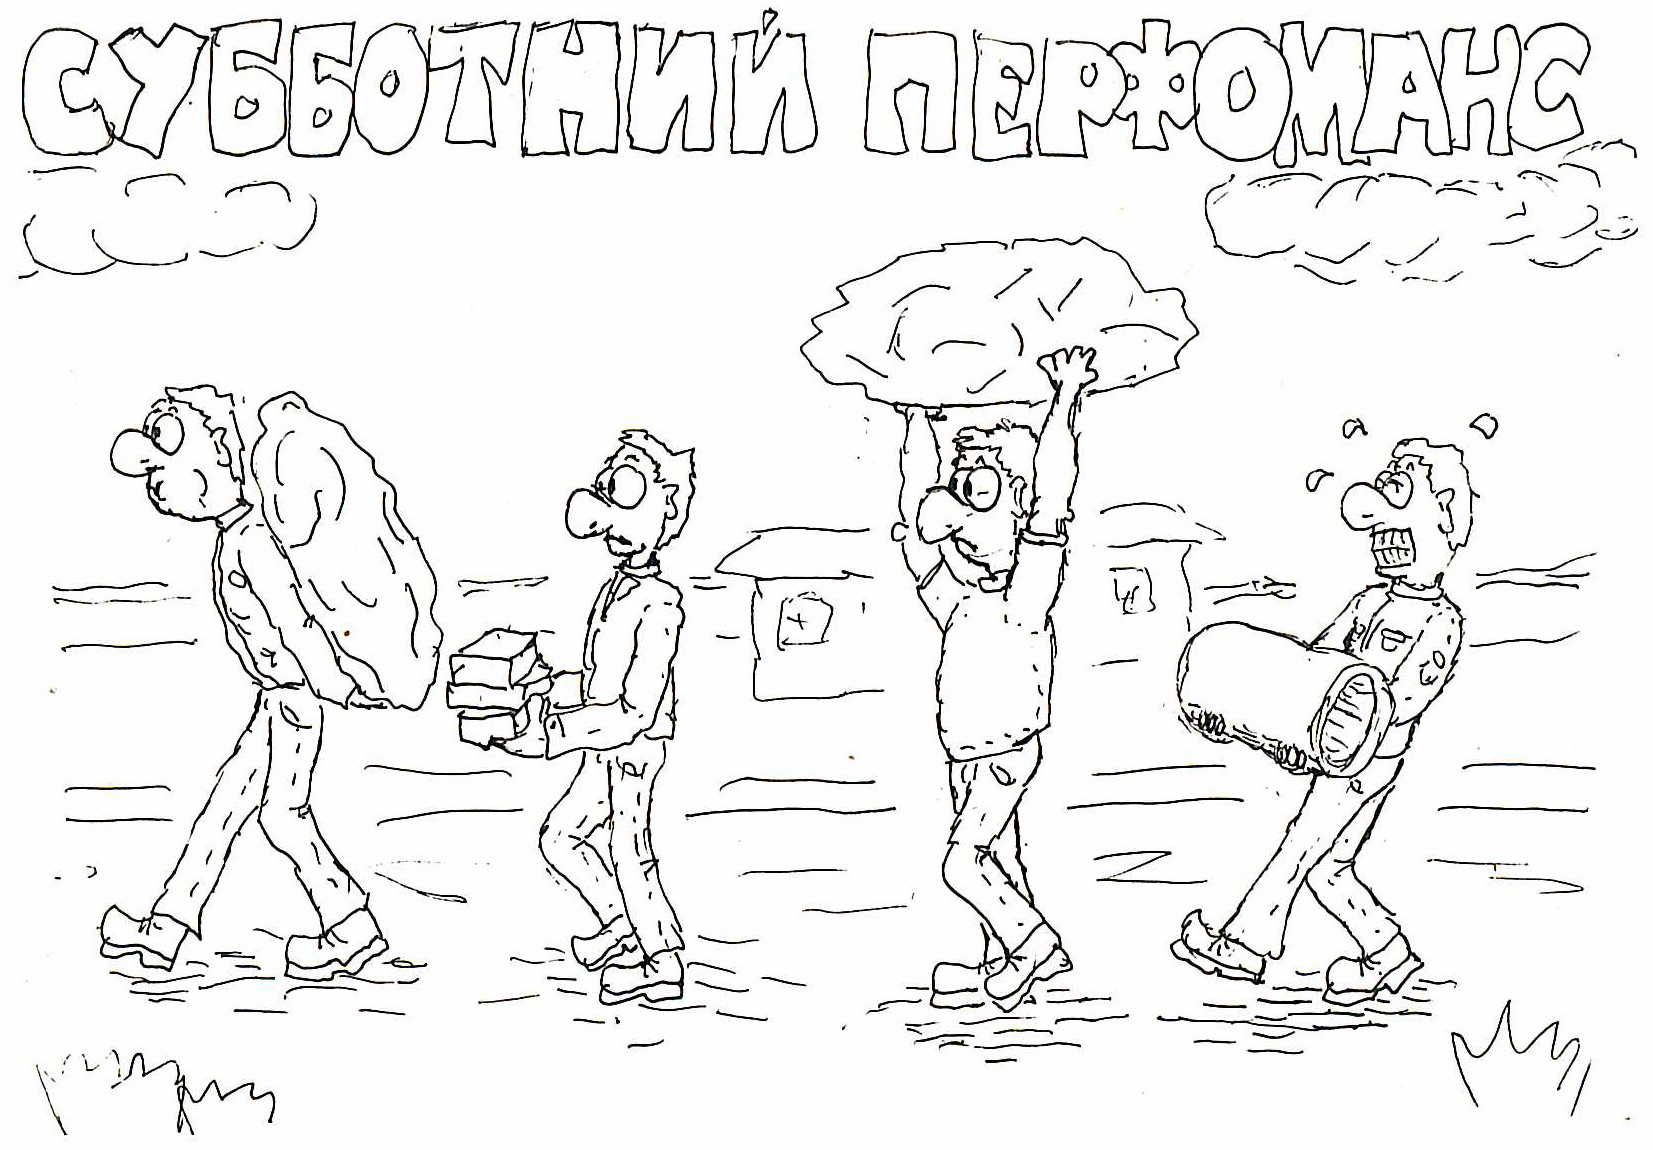 СУББОТНИЙ ПЕРФОМАНС